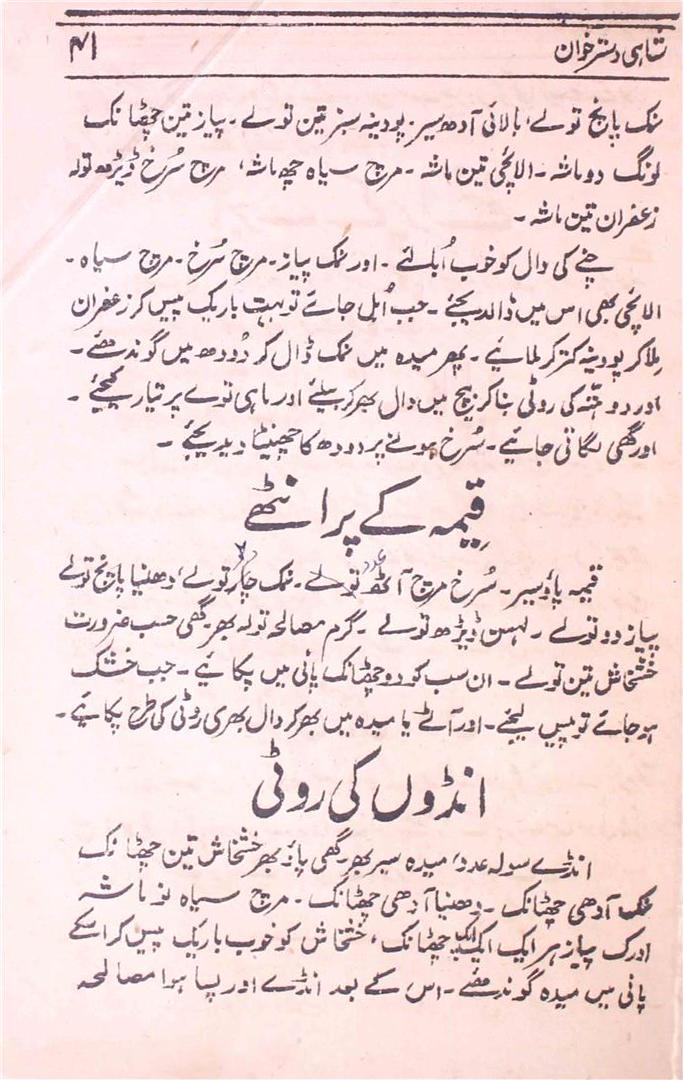 شاہی دسترخوان
۴۱
نمک پانچ تولے، بالائی آدھ سیر۔ پودینہ سبز تین تولے۔ پیاز تین چھٹانک
لونگ دو ماشہ۔ الائچی تین ماشہ۔ مرچ سیاہ چھ ماشہ، مرچ سُرخ ڈیڑھ تولہ
زعفران تین ماشہ۔
چنے کی دال کو خوب اُبالئے۔ اور نمک پیاز۔ مرچ سُرخ۔ مرچ سیاہ۔
الائچی بھی اس میں ڈالدیجئے۔ جب اُبل جائے تو بہت باریک پیس کر زعفران
مِلا کر پودینہ کتر کر ملائیے۔ پھر میدہ میں نمک ڈال کر دُودھ میں گوندھئے۔
اور دو حصّہ کی روٹی بنا کر بیچ میں دال بھر کر بیلئے اور ماہی توے پر تیار کیجئے۔
اور گھی لگاتی جائیے۔ سُرخ ہونے پر دودھ کا چھینٹا دیدیجئے۔
قیمہ کے پرانٹھے
قیمہ پاؤ سیر۔ سُرخ مرچ آٹھ تولے۔ نمک چار تولے، دھنیا پانچ تولے
پیاز دو تولے۔ لہسن ڈیڑھ تولے۔ گرم مصالحہ تولہ بھر۔ گھی حسب ضرورت
خشخاش تین تولے۔ ان سب کو دو چھٹانک پانی میں پکائیے۔ جب خشک
ہو جائے تو پیس لیجئے۔ اور آٹے یا میدہ میں بھر کر دال بھری روٹی کی طرح پکائیے۔
انڈوں کی روٹی
انڈے سولہ عدد، میدہ سیر بھر۔ گھی پاؤ بھر خشخاش تین چھٹانک
نمک آدھی چھٹانک۔ دھنیا آدھی چھٹانک۔ مرچ سیاہ نو ماشہ
ادرک پیاز ہر ایک ایک ایک چھٹانک، خشخاش کو خوب باریک پیس کر اسکے
پانی میں میدہ گوندھئے۔ اس کے بعد انڈے اور پسا ہوا مصالحہ